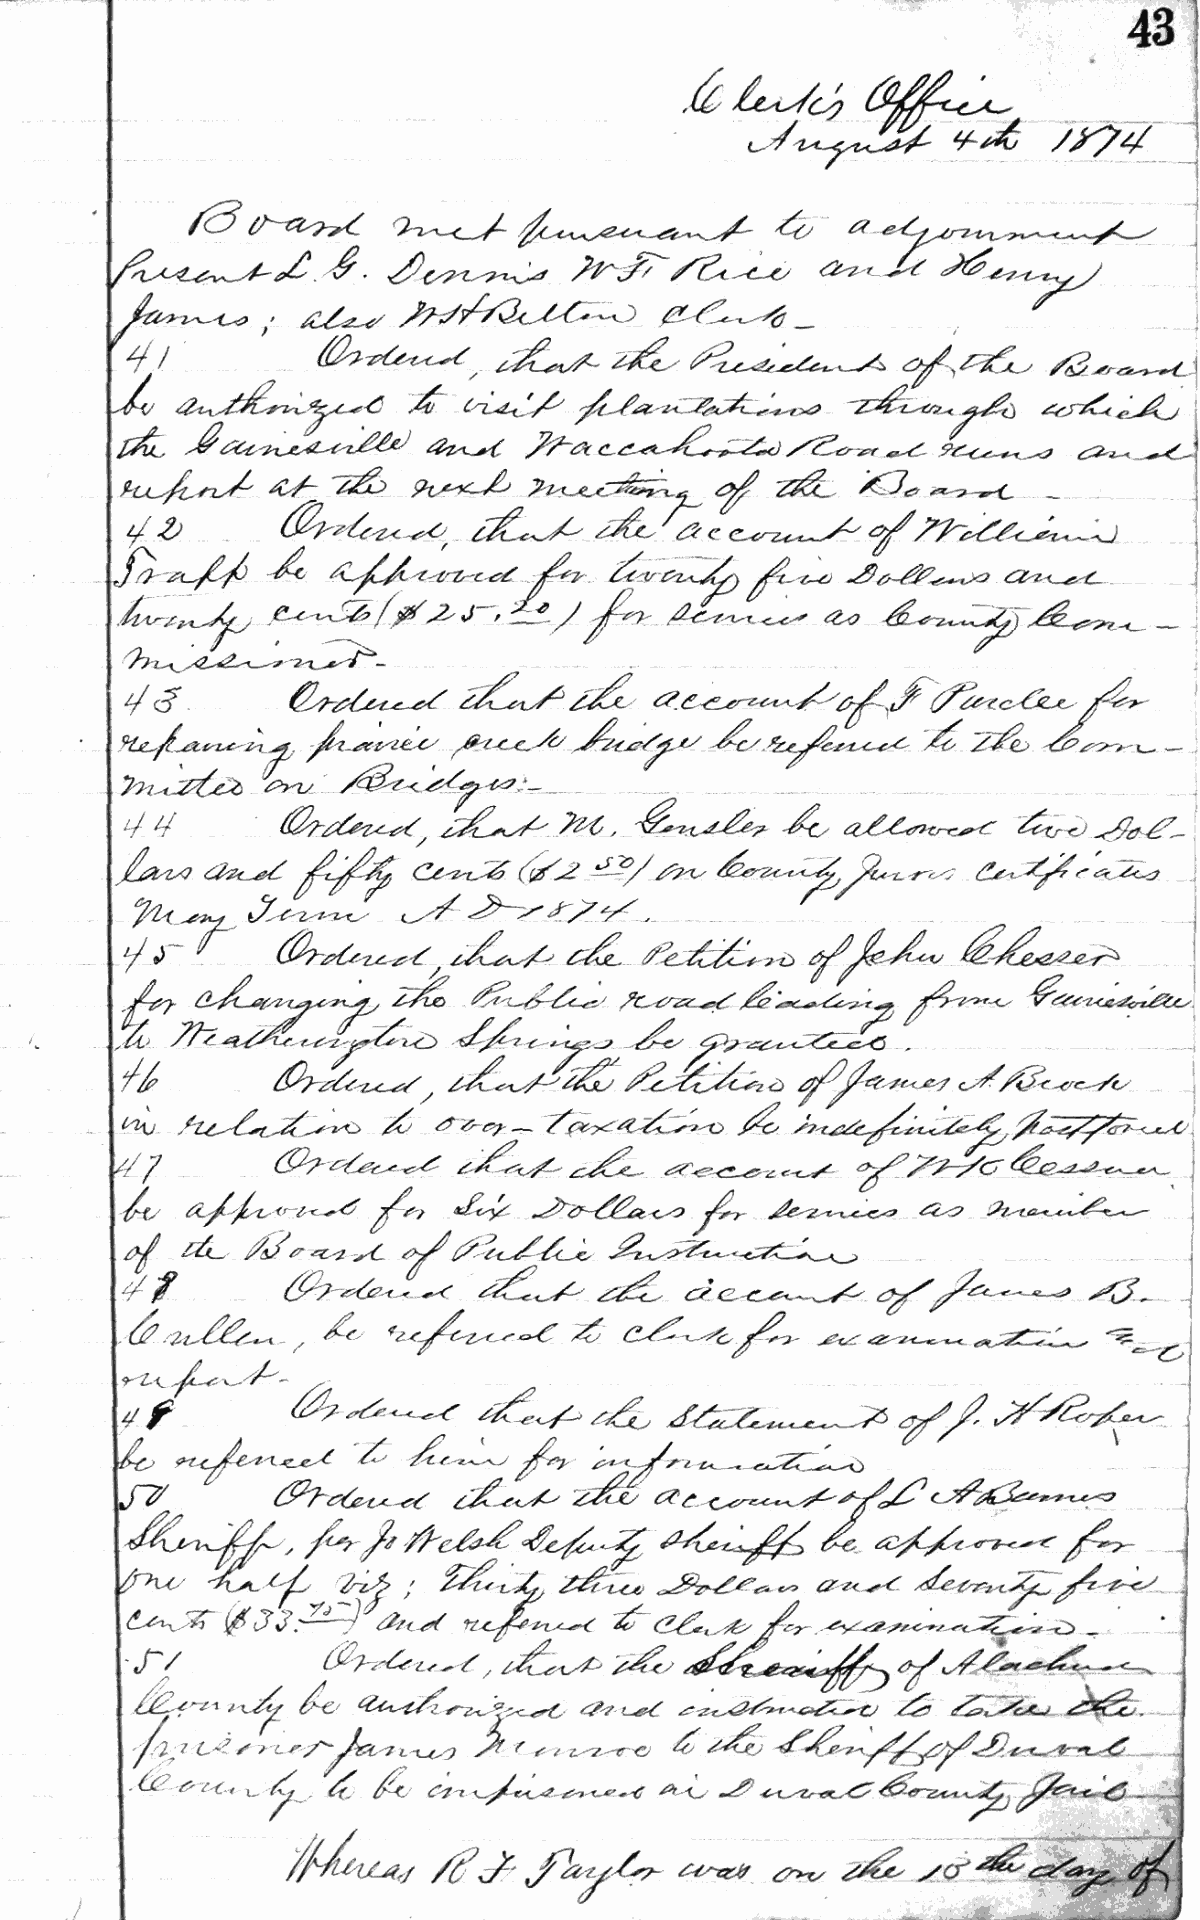 43
Clerk's Office
August 4th 1874
Board met pursuant to adjournment
Present L. G. Dennis W F Rice and Henry
James; also W H Belton Clerk -
41 Ordered, that the President of the Board
be authorized to visit plantations through which
the Gainesville and Waccahoota Road runs and
report at the next meeting of the Board -
42 Ordered, that the account of William
Trapp be approved for twenty five Dollars and
twenty cents ($25.20) for services as County Com-
missioner -
43 Ordered that the account of F Purdee for
repairing prairie creek bridge be referred to the Com-
mittee on Bridges:-
44 Ordered, that M. Gensler be allowed two Dol-
lars and fifty cents ($2 50) on County Jurors certificates
May Term A D 1874.
45 Ordered, that the Petition of John Chesser
for changing the Public road leading from Gainesville
to Weatherington Springs be granted.
46 Ordered, that the Petition of James A. Brock
in relation to over-taxation be indefinitely postponed
47 Ordered that the account of W K Cessna
be approved for Six Dollars for services as member
of the Board of Public Instruction
48 Ordered that the account of James B.
Cullen, be referred to clerk for examination and
report -
49 Ordered that the Statement of J. H Roper
be referred to him for information
50 Ordered that the account of L A Barnes
Sheriff, per Jo Welsh Deputy Sheriff be approved for
one half viz; Thirty three Dollars and Seventy five
cents ($33.75) and referred to Clerk for examination -
51 Ordered, that the Sheriff of Alachua
County be authorized and instructed to take the
prisoner James Monroe to the Sheriff of Duval
County to be imprisoned in Duval County Jail
Whereas R F Taylor was on the 13th day of